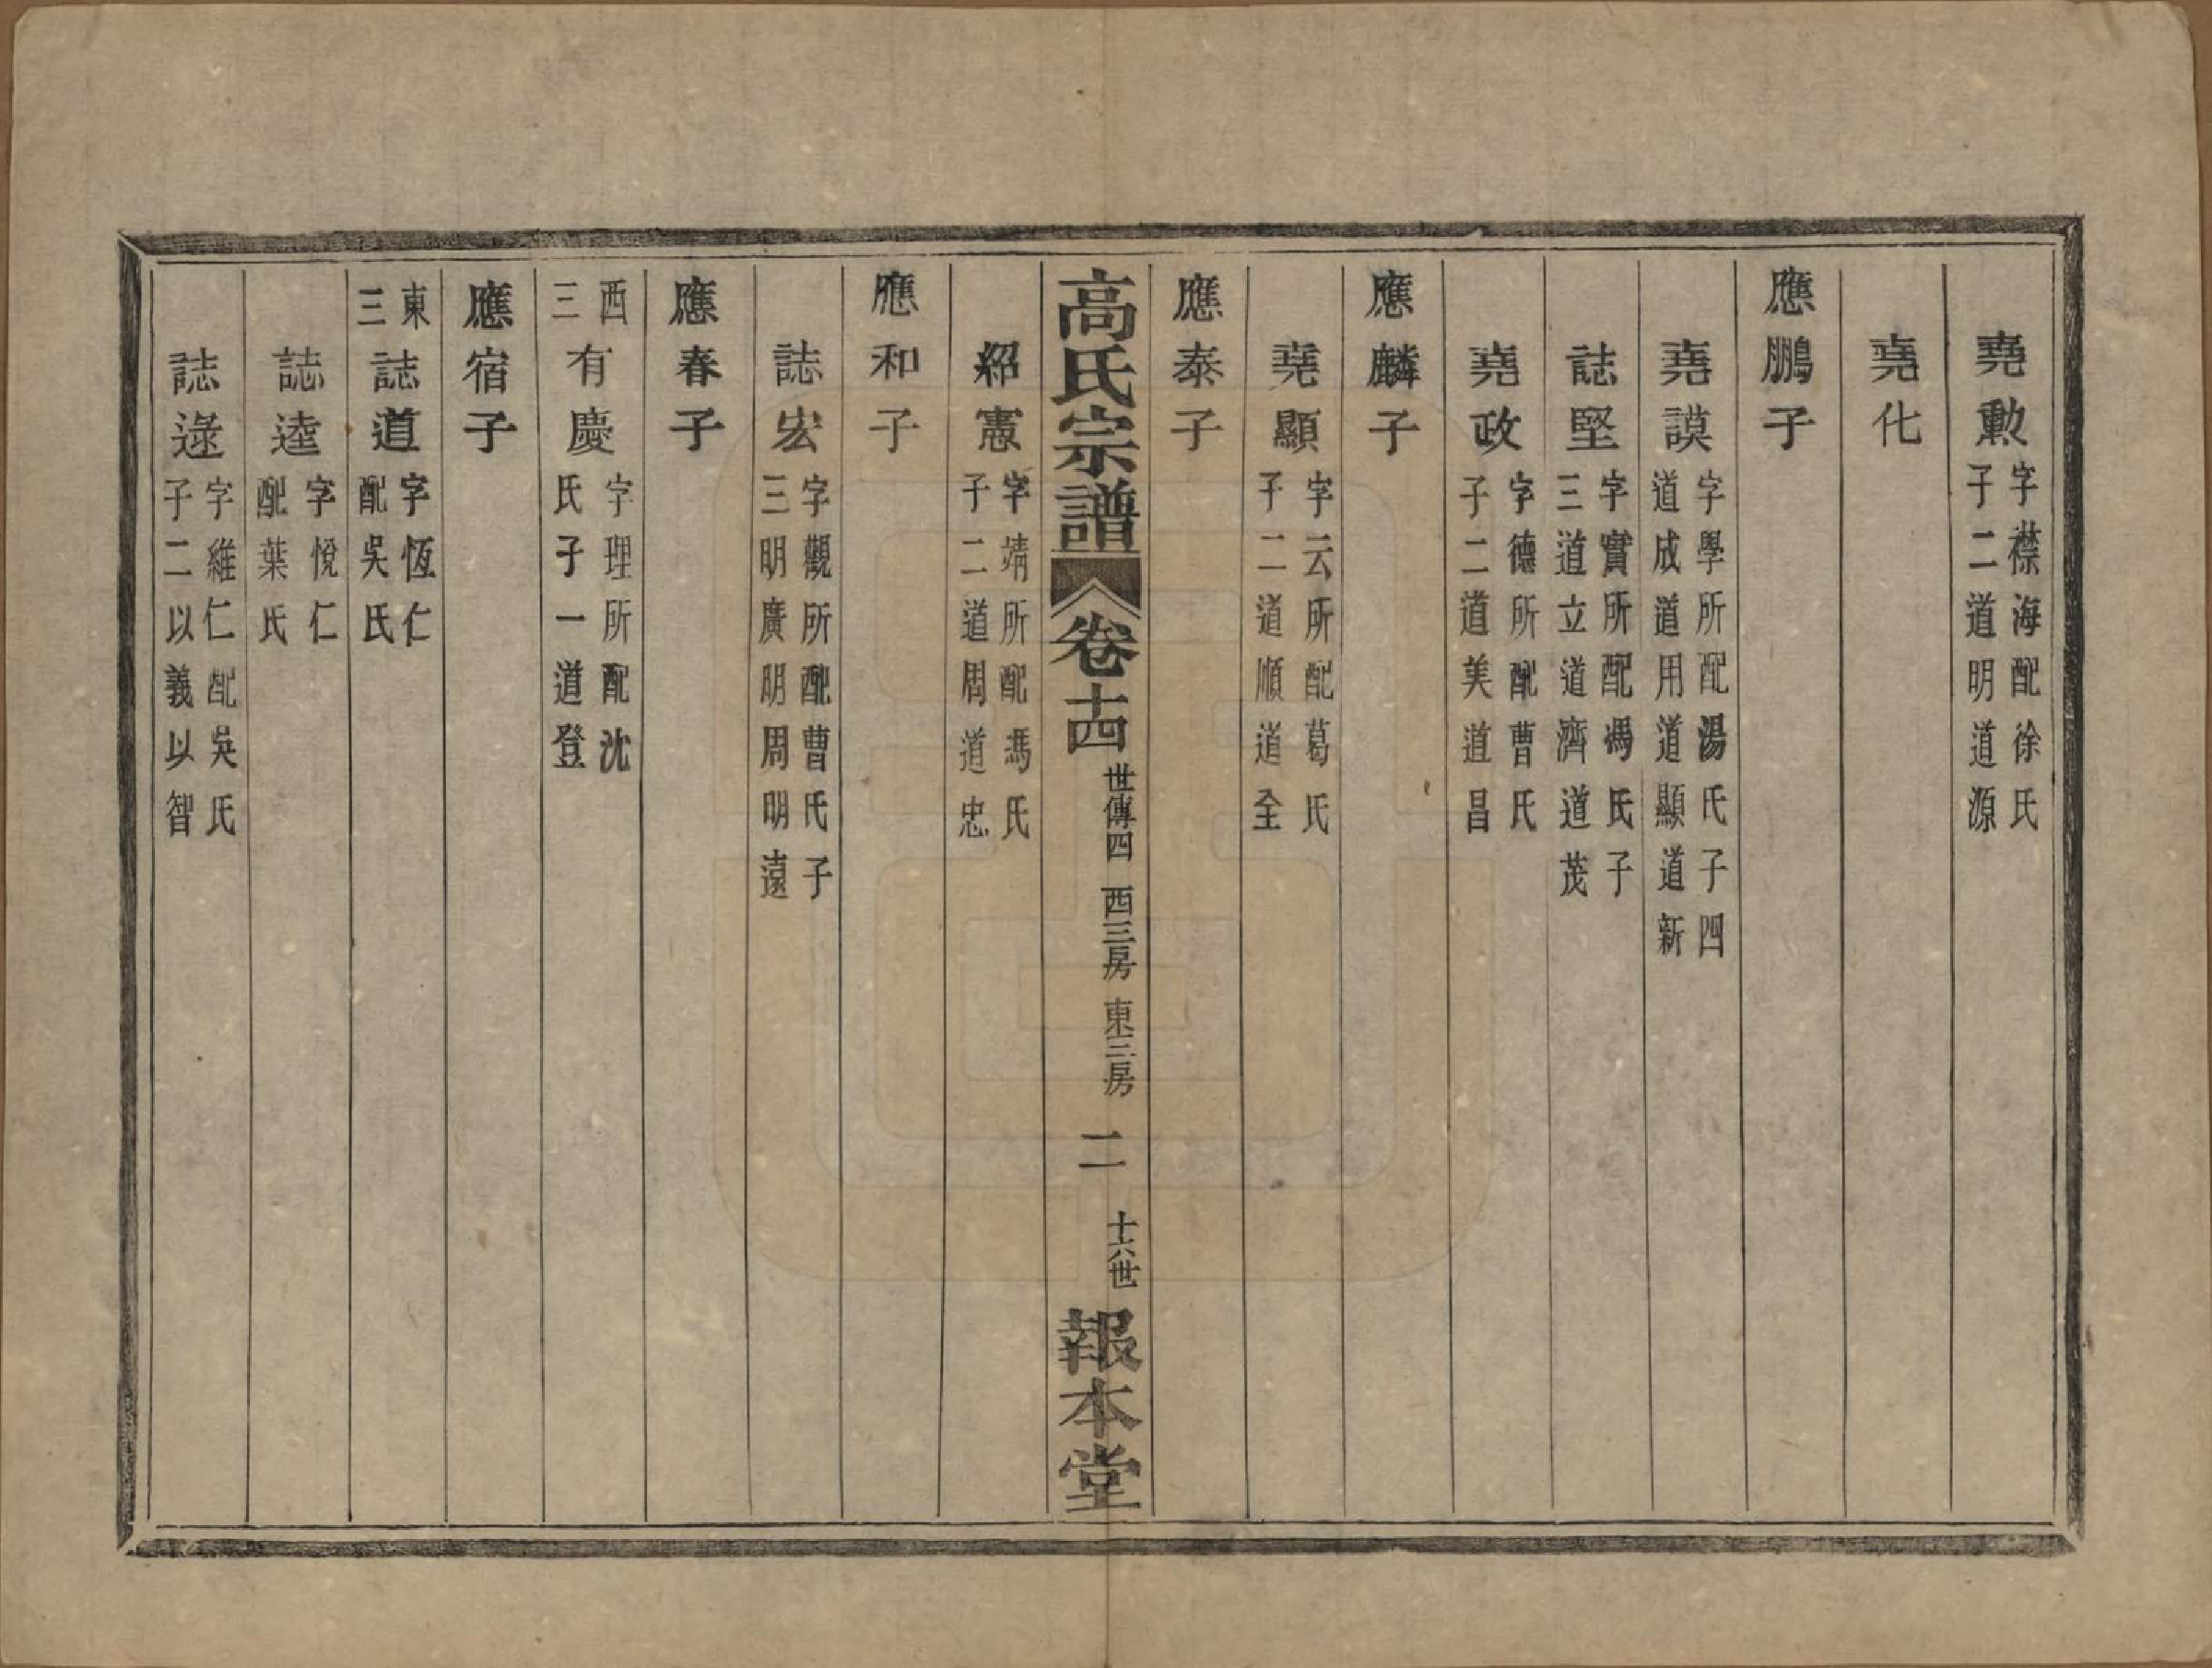 堯勲 字襟海配徐氏子二道明道源
堯化
應鵬子
堯謨 字學所配湯氏子四道成道用道顯道新
誌堅 字實所配馮氏子三道立道濟道茂
堯政 字德所配曹氏子二道美道昌
應麟子
堯顯 字云所配葛氏子二道順道全
應泰子
高氏宗譜 卷十四 世傳四 西三房 東三房 二 十六世 報本堂
紹憲 字靖所配馮氏子二道周道忠
應和子
誌宏 字觀所配曹氏子三明廣明周明遠
應春子
西三 有慶 字理所配沈氏子一道登
應宿子
東三 誌道 字恆仁配吳氏
誌逵 字悅仁配葉氏
誌逯 字維仁配吳氏子二以義以智